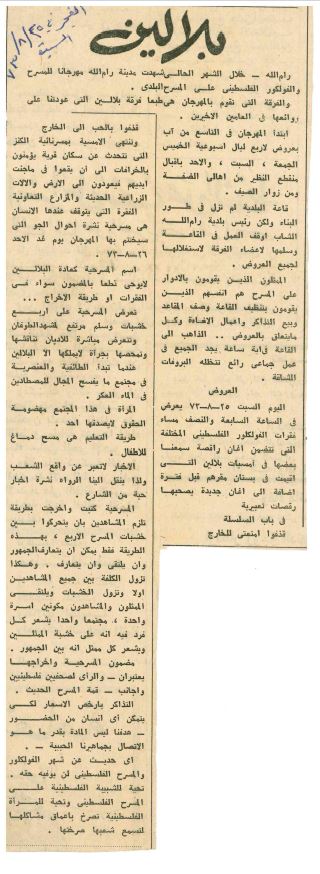 الفجر
٧٣/٨/٢٥
السبت
بلالين
رام الله — خلال الشهر الحالي شهدت مدينة رام الله مهرجانا للمسرح
والفولكور الفلسطيني على المسرح البلدي.
والفرقة التي تقوم بالمهرجان هي طبعا فرقة بلالين التي عودتنا على
روائعها في العامين الاخيرين.
ابتدأ المهرجان في التاسع من آب
بعروض لاربع ليال اسبوعية الخميس
الجمعة ، السبت ، والاحد باقبال
منقطع النظير من اهالي الضفة
ومن زوار الصيف .
قاعة البلدية لم تزل في طور
البناء ولكن رئيس بلدية رام الله
الشاب اوقف العمل في القاعة
وسلمها لاعضاء الفرقة لاستغلالها
لجميع العروض .
الممثلون الذين يقومون بالادوار
على المسرح هم انفسهم الذين
يقومون بتنظيف القاعة وصف المقاعد
وبيع التذاكر واعمال الاضاءة وكل
مايتعلق بالعروض .. الذاهب الى
القاعة في اية ساعة يجد الجميع في
عمل جماعي رائع تتخلله البروفات
الشاقة .
العروض
اليوم السبت ٢٥—٨—٧٣ يعرض
في الساعة السابعة والنصف مساء
فقرات الفولكلور الفلسطيني المختلفة
التي تتضمن اغان راقصة سمعنا
بعضها في امسيات بلالين التي
اقيمت في بستان مفرهم قبل فترة
اضافة الى اغان جديدة يصحبها
رقصات تعبيرية
في باب السلسلة
قذفوا امتعتي للخارج
قذفوا بالحب الى الخارج
وتنتهي الامسية بمسرحية الكنز
التي تتحدث عن سكان قرية يؤمنون
بالخرافات الى ان يقعوا في ماجنت
ايديهم فيعودون الى الارض والآلات
الزراعية الحديثة والمزارع التعاونية
الفقرة التي يتوقف عندها الانسان
هي مسرحية نشرة احوال الجو التي
سيختتم بها المهرجان يوم غد الاحد
٢٦—٨—٧٣
اسم المسرحية كعادة البلالين
لايوحي قطعا بالمضمون سواء في
الفقرات او طريقة الاخراج ...
تعرض المسرحية على اربع
خشبات وسلم مرتفع لمشهد الطوفان
وتتعرض مباشرة للاديان تناقشها
وتمحصها بجرأة لايملكها الا البلالين
عندما تبدأ الطائفية والعنصرية
في مجتمع ما يفسح المجال للمصطادين
في الماء العكر .
المرأة في هذا المجتمع مهضومة
الحقوق لايصدقها احد .
طريقة التعليم هي مسح دماغ
للاطفال .
الاخبار لاتعبر عن واقع الشعب
ولذا ينقل الينا الرواة نشرة اخبار
حية من الشارع .
المسرحية كتبت واخرجت بطريقة
تلزم المشاهدين بان يتحركوا بين
خشبات المسرح الاربع ، بهذه
الطريقة فقط يمكن ان يتعارف الجمهور
وان يلتقي وان يتعارف . وهكذا
تزول الكلفة بين جميع المشاهدين
اولا وتزول الخشبات ويلتقي
الممثلون والمشاهدون مكونين اسرة
واحدة ، مجتمعا واحدا يشعر كل
فرد فيه انه على خشبة الممثلين
ويشعر كل ممثل انه بين الجمهور .
مضمون المسرحية واخراجها
يعتبران — والرأي لصحفيين فلسطينيين
واجانب — قمة المسرح الحديث .
التذاكر بارخص الاسعار لكي
يتمكن أي انسان من الحضور
— هدفنا ليس المادة بقدر ما هو
الاتصال بجماهيرنا الحبيبة — .
اي حديث عن شهر الفولكلور
والمسرح الفلسطيني لن يوفيه حقه .
تحية للشبيبة الفلسطينية على
المسرح الفلسطيني وتحية للمرأة
الفلسطينية تصرخ باعماق مشاكلها
لتسمع شعبها صرختها .